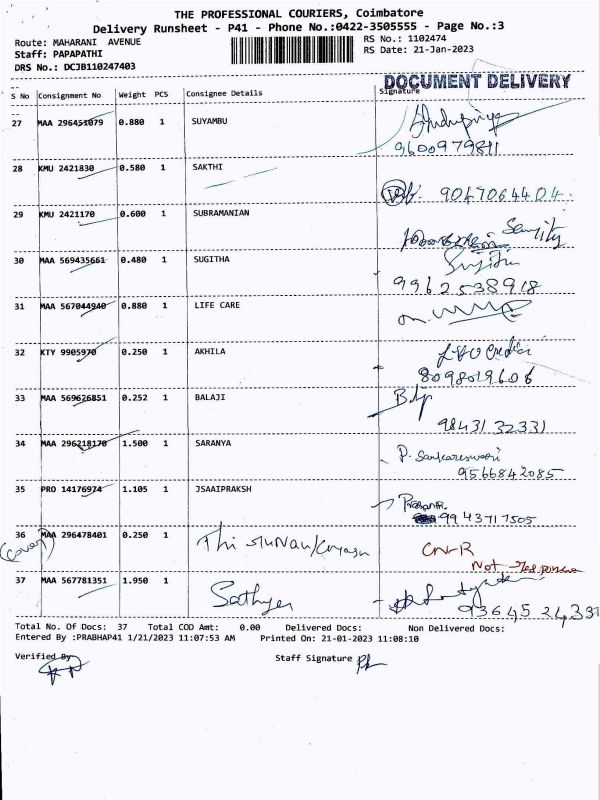 THE PROFESSIONAL COURIERS, Coimbatore
Delivery Runsheet - P41 - Phone No.:0422-3505555 - Page No.:3
Route: MAHARANI AVENUE RS No.: 1102474
Staff: PAPAPATHI RS Date: 21-Jan-2023
DRS No.: DCJB110247403
DOCUMENT DELIVERY
S No Consignment No Weight PCS Consignee Details Signature
27 MAA 296451079 0.880 1 SUYAMBU
9600979811
28 KMU 2421830 0.580 1 SAKTHI
9047064404
29 KMU 2421170 0.600 1 SUBRAMANIAN
30 MAA 569435661 0.480 1 SUGITHA
9962538918
31 MAA 567044940 0.880 1 LIFE CARE
32 KTY 9905970 0.250 1 AKHILA
8098019606
33 MAA 569626851 0.252 1 BALAJI
98431 32331
34 MAA 296218170 1.500 1 SARANYA
P. Sankareswari
9566842085
35 PRO 14176974 1.105 1 JSAAIPRAKSH
9943717505
36 MAA 296478401 0.250 1
(cover) CNR
Not
37 MAA 567781351 1.950 1 Sathya
93645 24337
Total No. Of Docs: 37 Total COD Amt: 0.00 Delivered Docs: Non Delivered Docs:
Entered By :PRABHAP41 1/21/2023 11:07:53 AM Printed On: 21-01-2023 11:08:10
Verified By Staff Signature